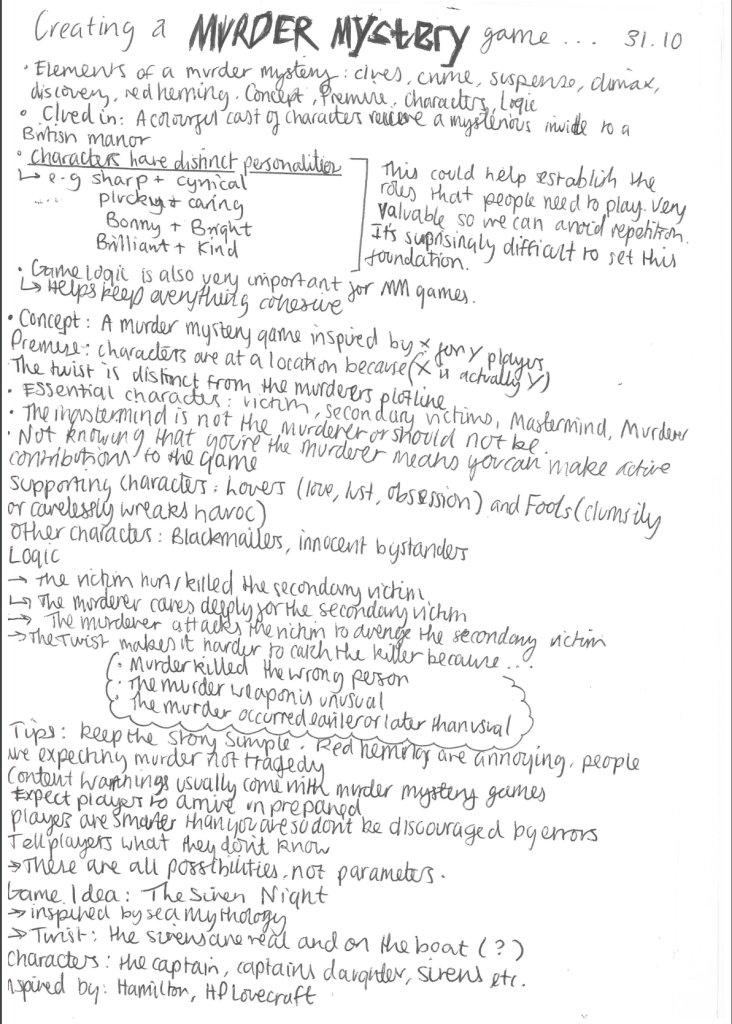 Creating a MURDER Mystery game... 31.10
• Elements of a murder mystery: clues, crime, suspense, climax,
discovery, red herring. Concept, Premise, characters, Logic
• Clued in: A colourful cast of characters receive a mysterious invite to a
British manor
• Characters have distinct personalities
↳ e.g sharp + cynical
.... plucky + caring
Bonny + Bright
Brilliant + Kind
This could help establish the
roles that people need to play. Very
valuable so we can avoid repetition.
It's suprisingly difficult to set this
foundation.
• Game logic is also very important for MM games.
↳ Helps keep everything cohesive
• Concept: A murder mystery game inspired by x for y players
Premise: characters are at a location because (X is actually Y)
The twist is distinct from the murderers plotline
• Essential character: victim, secondary victims, Mastermind, Murderer
• The mastermind is not the murderer or should not be.
• Not knowing that you're the murderer means you can make active
contributions to the game
Supporting character: Lovers (love, lust, obsession) and Fools (clumsily
or carelessly wreaks havoc)
Other character: Blackmailers, innocent bystanders
Logic
→ The victim hurt/killed the secondary victim
↳ The murderer cares deeply for the secondary victim
→ The murderer attacks the victim to avenge the secondary victim
→ The Twist makes it harder to catch the killer because...
• Murder killed the wrong person
• The murder weapon is unusual
• The murder occurred earlier or later than usual
Tips: keep the story simple. Red herrings are annoying. people
are expecting murder not tragedy
Content warnings usually come with murder mystery games
Expect player to arrive unprepared
players are smarter than you are so don't be discouraged by errors
Tell players what they don't know
→ These are all possibilities, not parameters.
Game Idea: The Siren Night
→ inspired by sea mythology
→ Twist: the sirens are real and on the boat (?)
Characters: the captain, captains daughter, sirens etc.
nspired by: Hamilton, HP Lovecraft